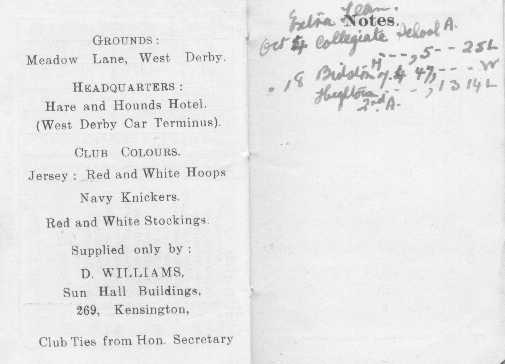 GROUNDS:
Meadow Lane, West Derby.
HEADQUARTERS:
Hare and Hounds Hotel.
(West Derby Car Terminus).
CLUB COLOURS.
Jersey: Red and White Hoops
Navy Knickers.
Red and White Stockings.
Supplied only by:
D. WILLIAMS,
Sun Hall Buildings,
269, Kensington,
Club Ties from Hon. Secretary
Notes.
Extra Team.
Oct Collegiate School A.
5 -- 25 L
18 Bidston 47, --- W
, 13 14 L
2nd A.